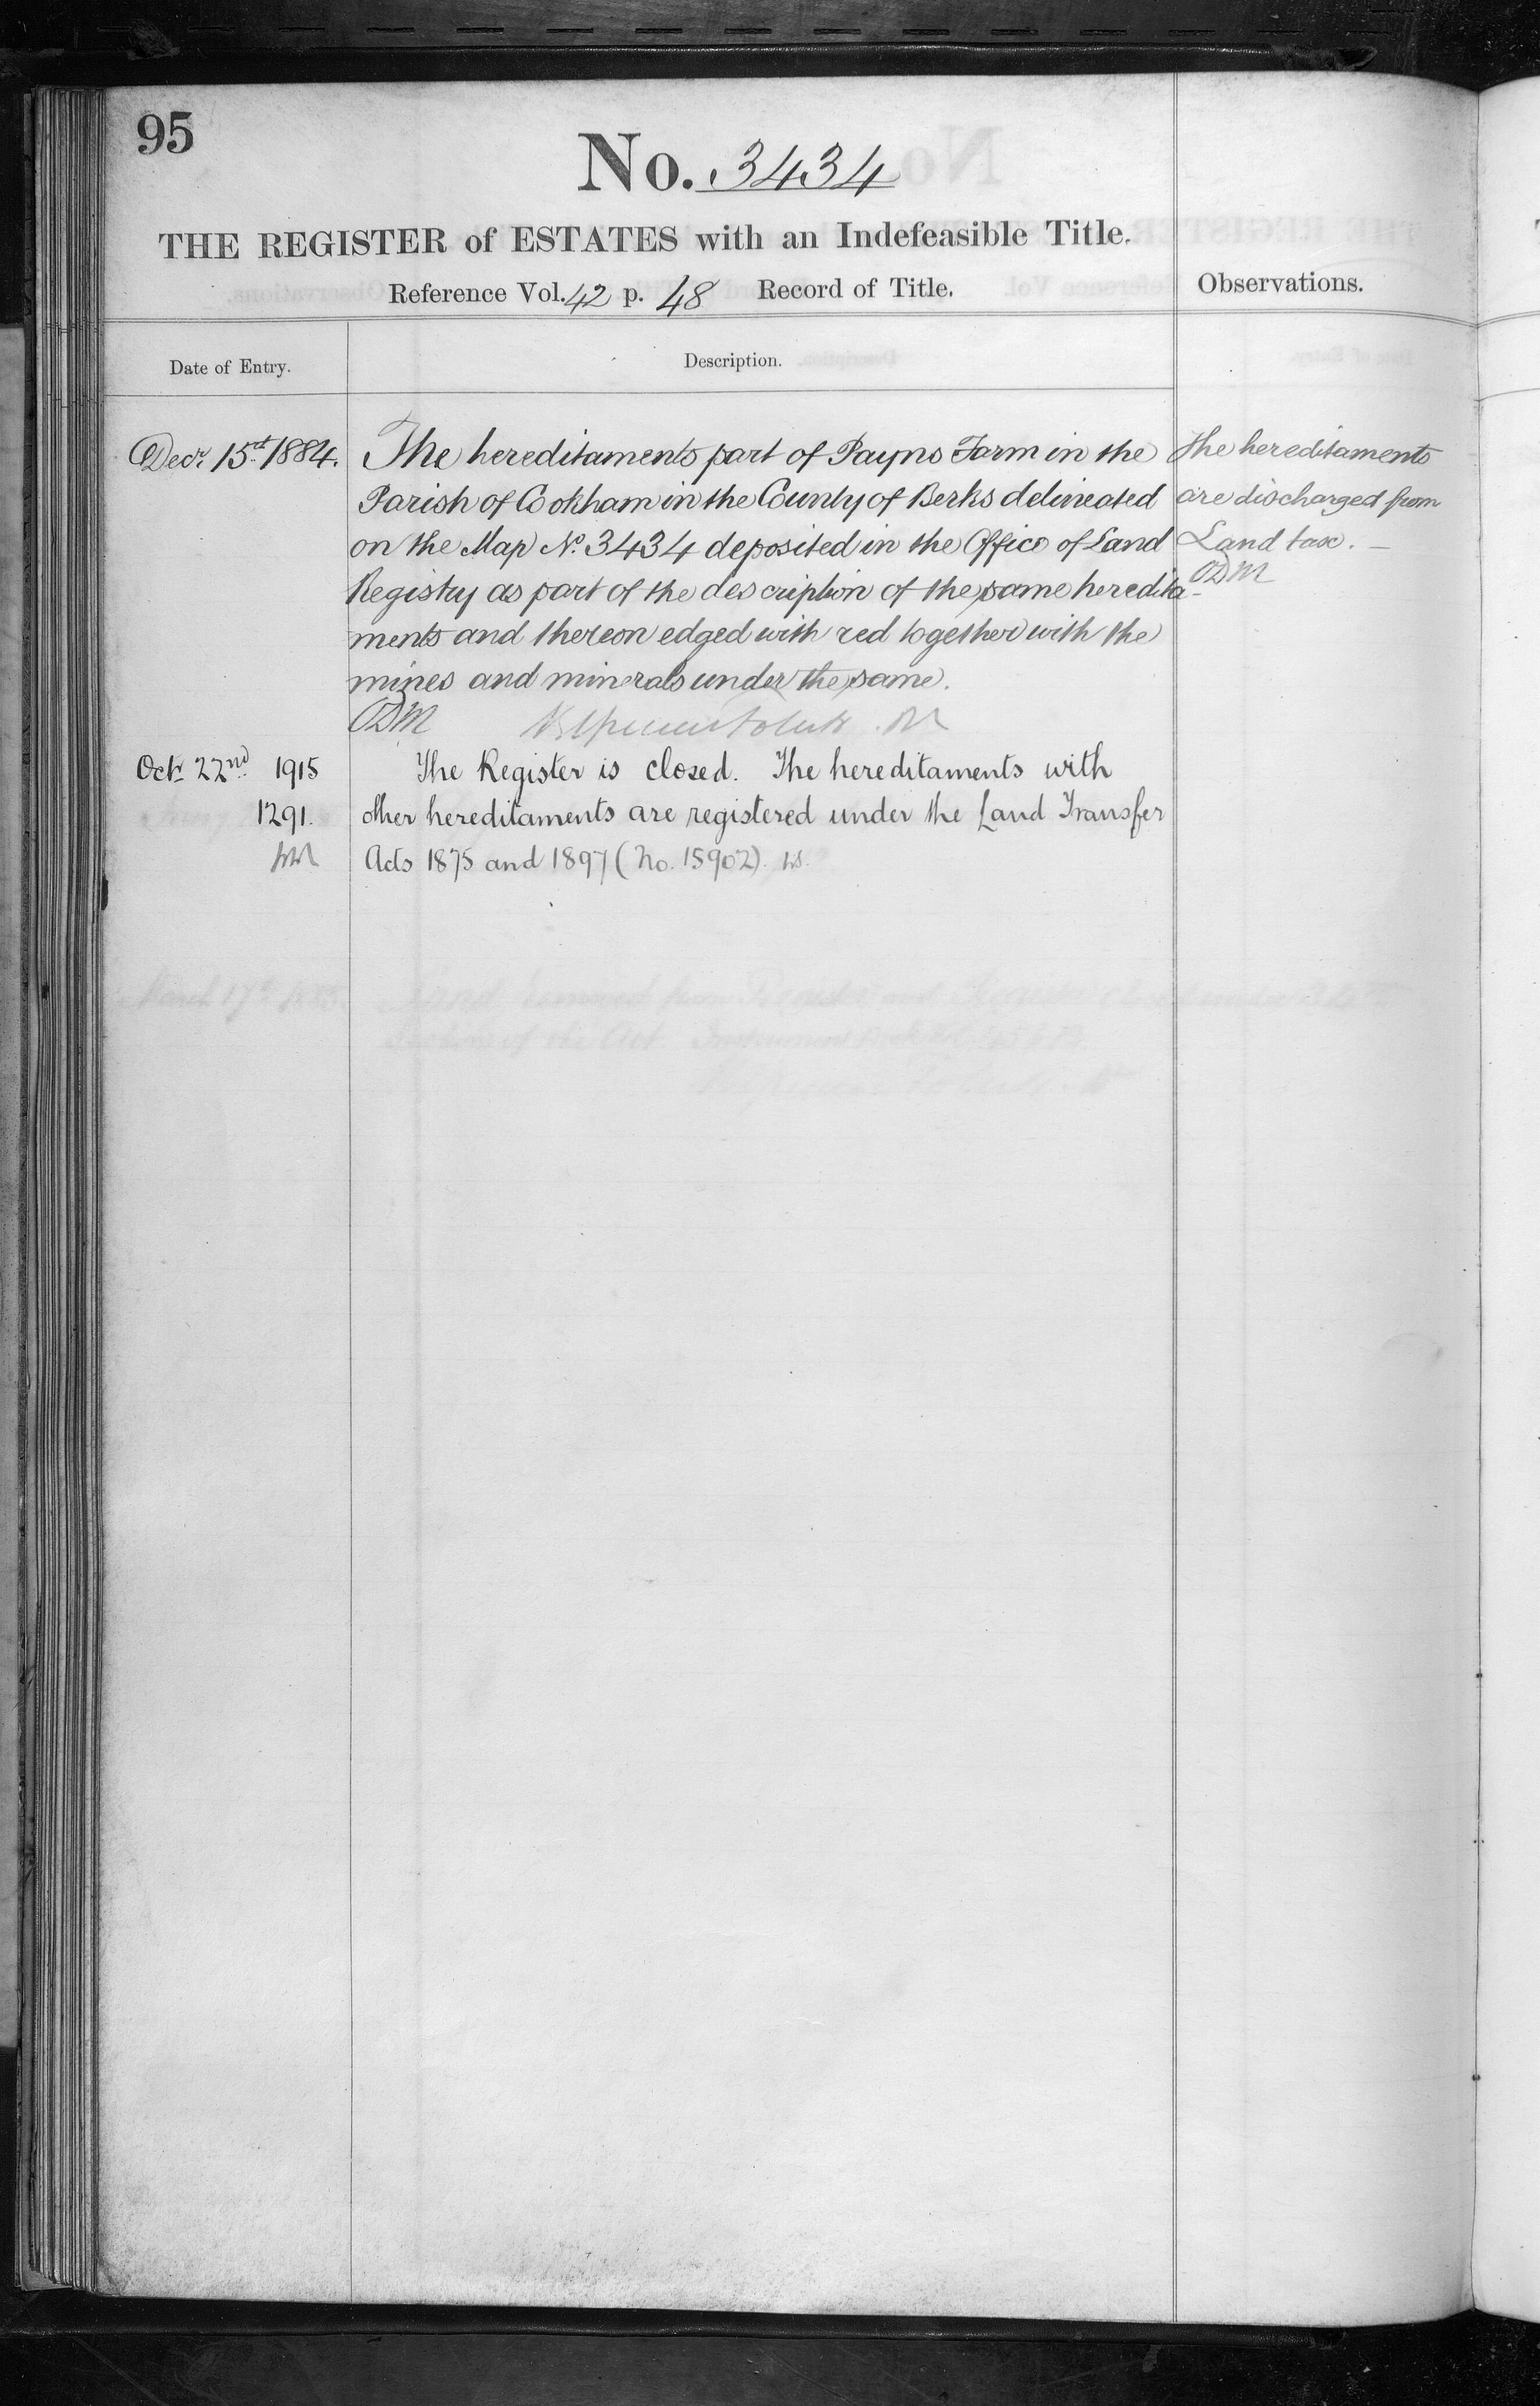 95
No. 3434
THE REGISTER of ESTATES with an Indefeasible Title.
Reference Vol. 42 p. 48 Record of Title.
Observations.
Date of Entry.
Description.
Decr. 15th 1884.
The hereditaments part of Payns Farm in the
Parish of Cookham in the County of Berks delineated
on the Map No. 3434 deposited in the Office of Land
Registry as part of the description of the same heredita-
ments and thereon edged with red together with the
mines and minerals under the same.
ODM
The hereditaments
are discharged from
Land tax. —
ODM
Oct. 22nd 1915
1291.
The Register is closed. The hereditaments with
other hereditaments are registered under the Land Transfer
Acts 1875 and 1897 (No. 15902).